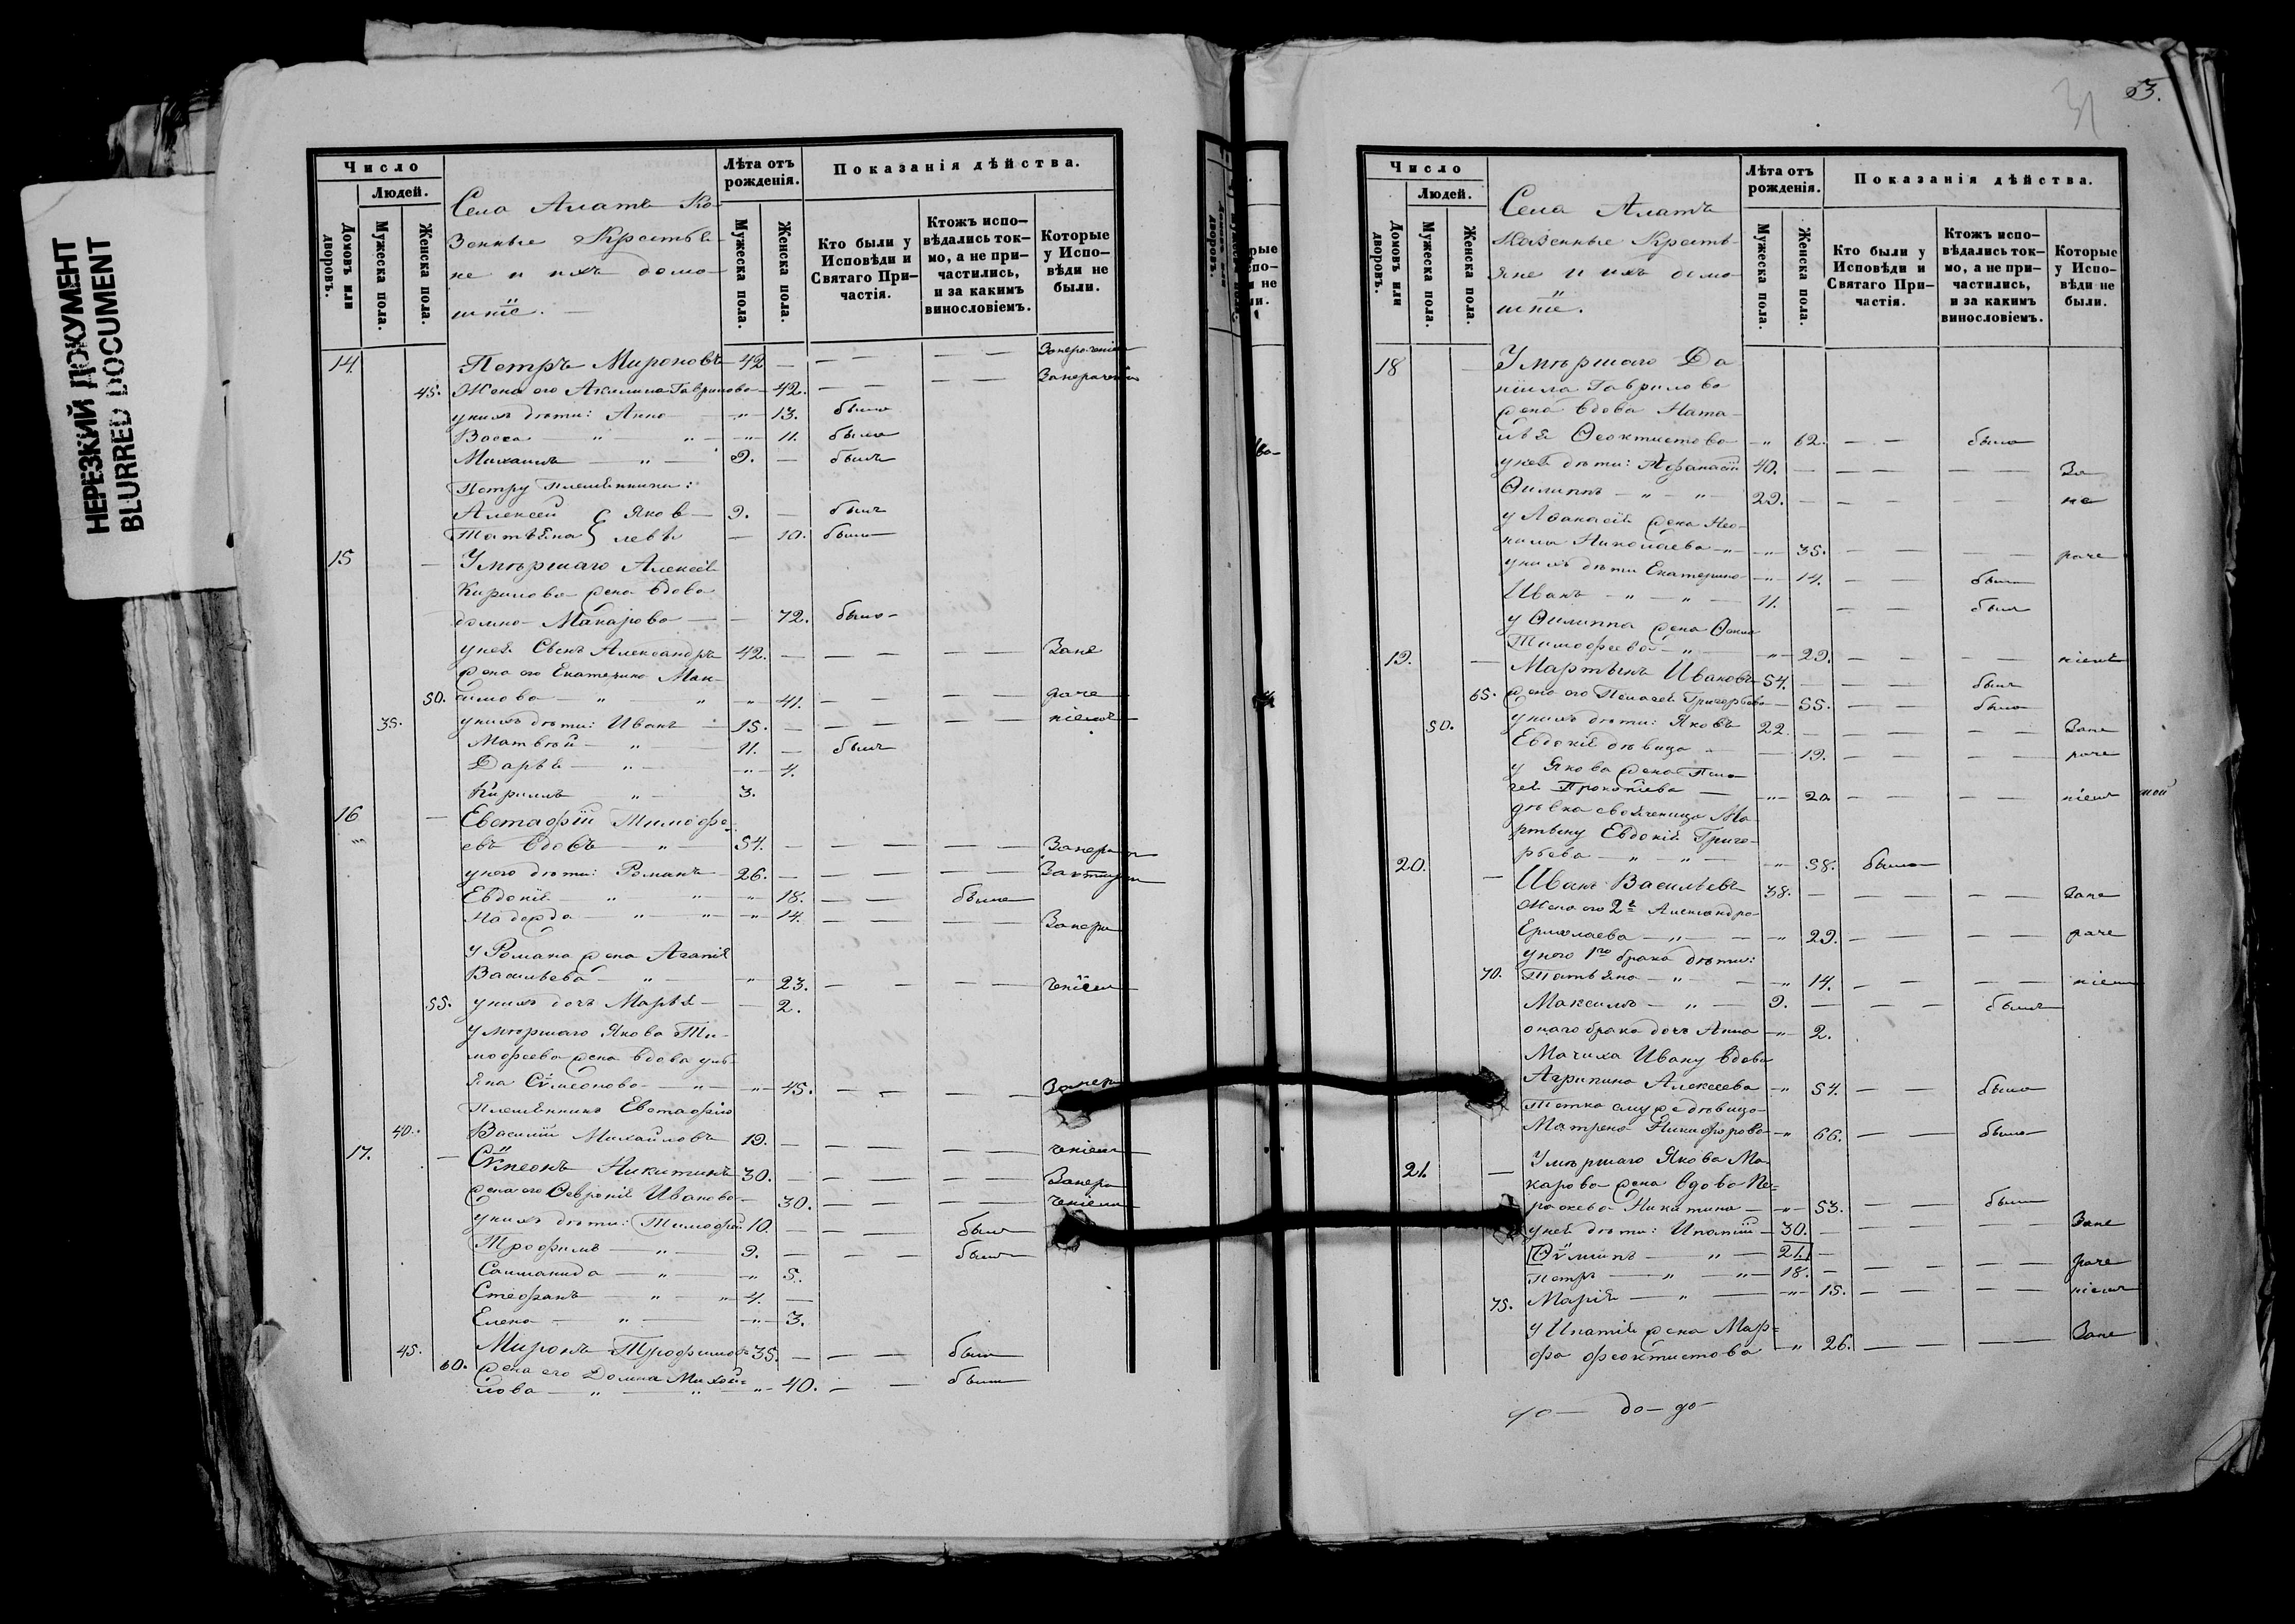 НЕРЕЗКИЙ ДОКУМЕНТ
BLURRED DOCUMENT
Число
Людей.
Домовъ или дворовъ.
Мужеска пола.
Женска пола.
Села Алатъ Ка-
зенные Крестья-
не и ихъ дома-
шніе.
Лѣта отъ рожденія.
Мужеска пола.
Женска пола.
Показанія дѣйства.
Кто были у Исповѣди и Святаго При-частія.
Ктожъ испо-вѣдались ток-мо, а не при-частились, и за какимъ винословіемъ.
Которые у Испо-вѣди не были.
14. Петръ Мироновъ 42 — Занераченіем
45. Жена его Акилина Гаврилова 42. Занераченіем
у нихъ дѣти: Анна 13. была
Васса " " 11. была
Михаилъ " 9. — былъ
Петру племянники:
Алексей } Яков 9. — былъ
Татьяна } левы — 10. была
15 Умершаго Алексея
Кирилова жена вдова
Домна Макарова — 72. была
у нея Сынъ Александръ 42. — Зане
жена его Екатерина Мак-
50. симова " " 41. раче
35. у нихъ дѣти: Иванъ 15. — ніемъ
Матвѣй " 11. — былъ
Дарья " " 4.
Кириллъ " 3.
16 Евстафій Тимофе-
евъ вдовъ " 54. — Занерач
у него дѣти: Романъ 26. —
Евдокія " " 18. была
Надежда " " 14. Занера
у Романа жена Агапія
Васильева " " 23. ченіем
55. у нихъ дочь Марья — 2.
умершаго Якова Ти-
мофеева жена вдова Уль-
яна Сѵмеонова " " 45. Занера
Племянникъ Евстафію
40. Василій Михайловъ 19. — ченіем
17. Сѵмеонъ Никитинъ 30. Занера
жена его Ѳевронія Иванова 30. ченіем
у нихъ дѣти: Тимофей 10. — был
Трофимъ " 9. — был
Саломанида " " 5.
Стефанъ " " 4. —
Елена " " 3.
45. Миронъ Трофимов 35. — был
60. жена его Домна Михай-
лова " " " 40. — была
53.
31
Число
Людей.
Домовъ или дворовъ.
Мужеска пола.
Женска пола.
Села Алатъ
Казенные Кресть-
яне и ихъ дома-
шніе.
Лѣта отъ рожденія.
Мужеска пола.
Женска пола.
Показанія дѣйства.
Кто были у Исповѣди и Святаго При-частія.
Ктожъ испо-вѣдались ток-мо, а не при-частились, и за какимъ винословіемъ.
Которые у Испо-вѣди не были.
18 Умершаго Да
ніила Гаврилова
жена вдова Ната-
лья Ѳеоктистова " 62. была
у нея дѣти: Афанасій 40. — За
Ѳилиппъ " " 29. — не
у Афанасія жена Нео-
нила Николаева " " 35. раче
у нихъ дѣти Екатерина " 14. была
Иванъ " " 11. был
у Ѳилиппа жена Ѳекла
Тимофеева " " 29. ніемъ
19. Мартынъ Ивановъ 54. былъ
65. жена его Пелагея Григорьева 55. была
50. у нихъ дѣти: Яковъ 22. Зане
Евдокія дѣвица " — 19. раче
у Якова жена Пела
гея Прокопіева — " 20. ніем
дѣвка свояченица Ма-
ртыну Евдокія Григо-
рьева " " " 58. была
20. Иванъ Васильевъ 38. — Зане
Жена его 2я Александра
Ермолаева " " 29. раче
у него 1го брака дѣти:
70. Татьяна " " 14. ніем
Максимъ " 9. — былъ
онаго брака дочь Анна " 2.
Мачиха Ивану вдова
Агрипина Алексеева " 54. была
Тетка ему же дѣвица
Матрена Никифорова " 66. была
21. Умершаго Якова Ма-
карова жена вдова Па-
раскева Никитина " 53. была
у нея дѣти: Ипатій 30. — Зане
Ѳѵлипъ " 21. —
Петръ " " 18. — раче
75. Марія " " 15. ніем
у Ипатія жена Мар-
фа Феоктистова " 26. Зане